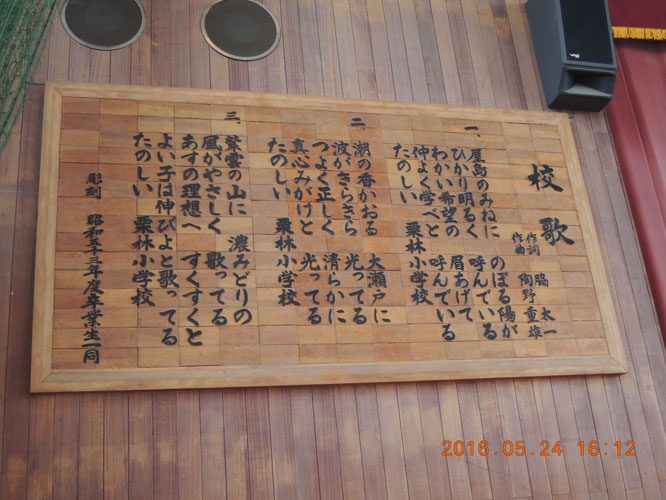 校歌
作詞 脇 太一
作曲 陶野重雄
一、
屋島のみねに のぼる陽が
ひかり明るく 呼んでいる
わかい希望の 眉あげて
仲よく学べと 呼んでいる
たのしい 栗林小学校
二、
潮の香かおる 大瀬戸に
波がきらきら 光ってる
つよく正しく 清らかに
真心みがけと 光ってる
たのしい 栗林小学校
三、
紫雲の山に 濃みどりの
風がやさしく 歌ってる
あすの理想へ すくすくと
よい子は伸びよと歌ってる
たのしい 栗林小学校
彫刻 昭和五十三年度卒業生一同
2016.05.24 16:12